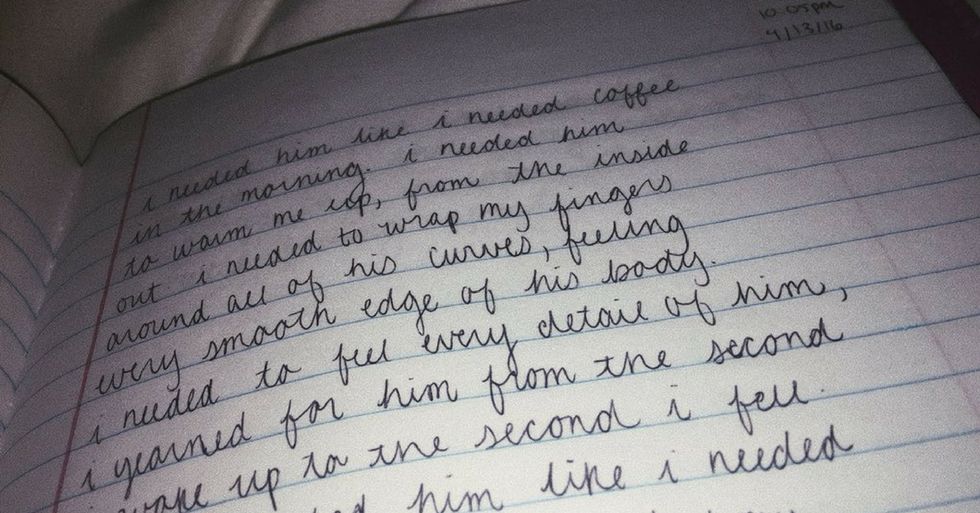 10:05pm
9/13/16
i needed him like i needed coffee
in the morning. i needed him
to warm me up, from the inside
out i needed to wrap my fingers
around all of his curves, feeling
every smooth edge of his body.
i needed to feel every detail of him,
i yearned for him from the second
i woke up to the second i fell.
him like i needed